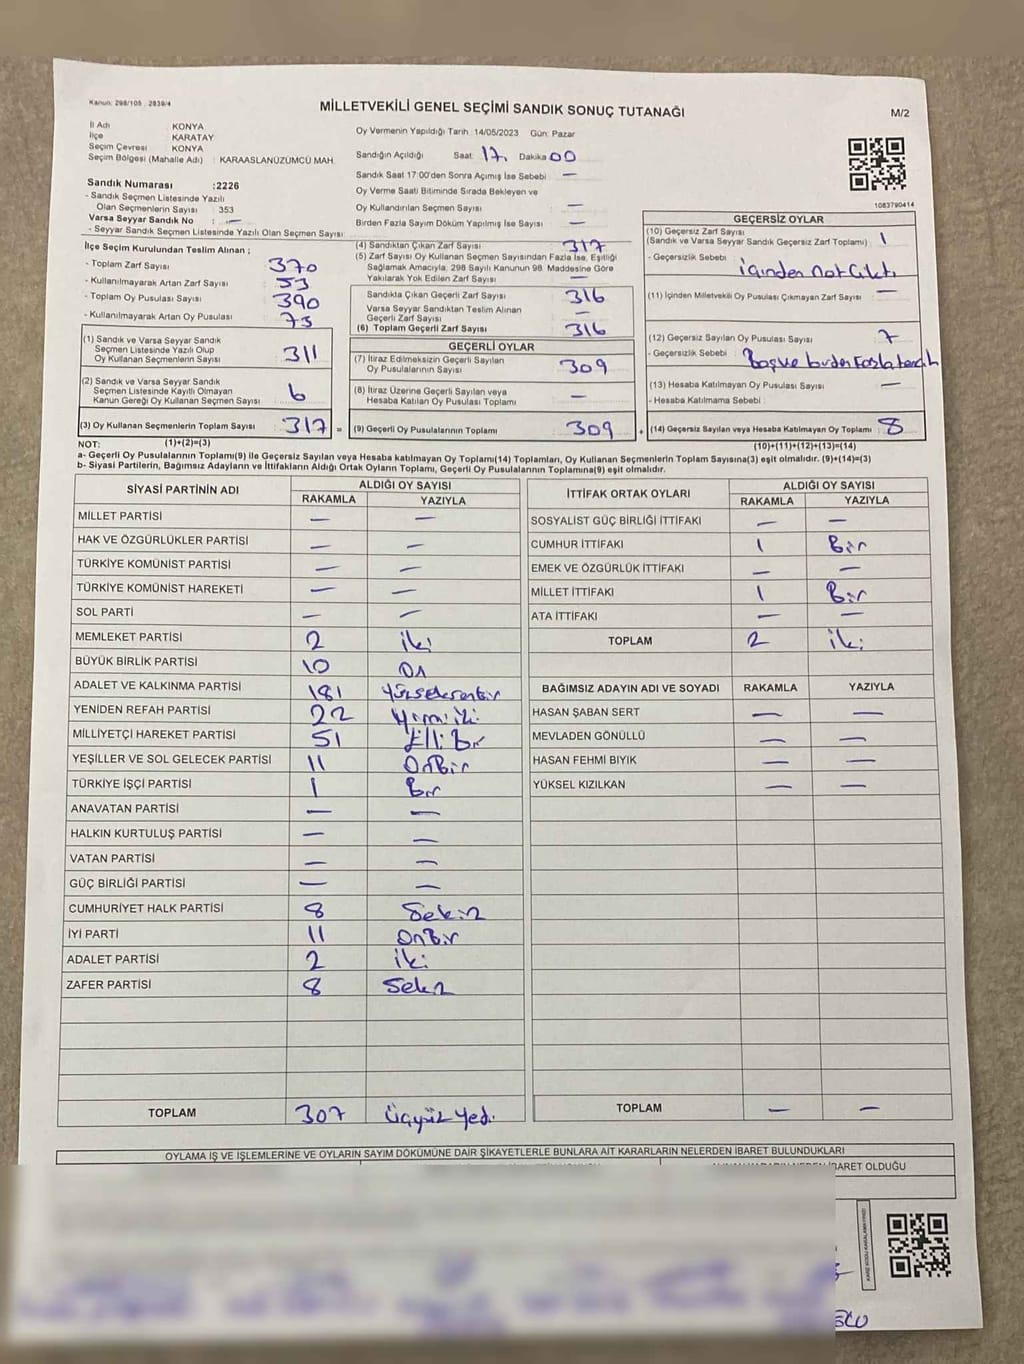 Kanun: 298/105 , 2839/4
MİLLETVEKİLİ GENEL SEÇİMİ SANDIK SONUÇ TUTANAĞI
M/2
İl Adı KONYA
İlçe KARATAY
Seçim Çevresi KONYA
Seçim Bölgesi (Mahalle Adı) : KARAASLANÜZÜMCÜ MAH.
Sandık Numarası :2226
- Sandık Seçmen Listesinde Yazılı
Olan Seçmenlerin Sayısı : 353
Varsa Seyyar Sandık No : —
- Seyyar Sandık Seçmen Listesinde Yazılı Olan Seçmen Sayısı:
Oy Vermenin Yapıldığı Tarih :14/05/2023 Gün: Pazar
Sandığın Açıldığı Saat: 17. Dakika 00
Sandık Saat 17:00'den Sonra Açılmış İse Sebebi —
Oy Verme Saati Bitiminde Sırada Bekleyen ve
Oy Kullandırılan Seçmen Sayısı —
Birden Fazla Sayım Döküm Yapılmış İse Sayısı —
1083790414
İlçe Seçim Kurulundan Teslim Alınan ;
- Toplam Zarf Sayısı 370
- Kullanılmayarak Artan Zarf Sayısı 53
- Toplam Oy Pusulası Sayısı 390
- Kullanılmayarak Artan Oy Pusulası 73
(1) Sandık ve Varsa Seyyar Sandık
Seçmen Listesinde Yazılı Olup
Oy Kullanan Seçmenlerin Sayısı 311
(2) Sandık ve Varsa Seyyar Sandık
Seçmen Listesinde Kayıtlı Olmayan
Kanun Gereği Oy Kullanan Seçmen Sayısı 6
(3) Oy Kullanan Seçmenlerin Toplam Sayısı 317 =
(1)+(2)=(3)
(4) Sandıktan Çıkan Zarf Sayısı 317
(5) Zarf Sayısı Oy Kullanan Seçmen Sayısından Fazla İse, Eşitliği
Sağlamak Amacıyla, 298 Sayılı Kanunun 98. Maddesine Göre
Yakılarak Yok Edilen Zarf Sayısı —
Sandıkta Çıkan Geçerli Zarf Sayısı 316
Varsa Seyyar Sandıktan Teslim Alınan
Geçerli Zarf Sayısı —
(6) Toplam Geçerli Zarf Sayısı 316
GEÇERLİ OYLAR
(7) İtiraz Edilmeksizin Geçerli Sayılan
Oy Pusulalarının Sayısı 309
(8) İtiraz Üzerine Geçerli Sayılan veya
Hesaba Katılan Oy Pusulası Toplamı —
(9) Geçerli Oy Pusulalarının Toplamı 309 +
GEÇERSİZ OYLAR
(10) Geçersiz Zarf Sayısı
(Sandık ve Varsa Seyyar Sandık Geçersiz Zarf Toplamı) 1
- Geçersizlik Sebebi : içinden not çıktı
(11) İçinden Milletvekili Oy Pusulası Çıkmayan Zarf Sayısı —
(12) Geçersiz Sayılan Oy Pusulası Sayısı 7
- Geçersizlik Sebebi : Boş ve birden fazla tercih
(13) Hesaba Katılmayan Oy Pusulası Sayısı —
- Hesaba Katılmama Sebebi :
(14) Geçersiz Sayılan veya Hesaba Katılmayan Oy Toplamı 8
(10)+(11)+(12)+(13)=(14)
NOT:
a- Geçerli Oy Pusulalarının Toplamı(9) ile Geçersiz Sayılan veya Hesaba katılmayan Oy Toplamı(14) Toplamları, Oy Kullanan Seçmenlerin Toplam Sayısına(3) eşit olmalıdır. (9)+(14)=(3)
b- Siyasi Partilerin, Bağımsız Adayların ve İttifakların Aldığı Ortak Oyların Toplamı, Geçerli Oy Pusulalarının Toplamına(9) eşit olmalıdır.
SİYASİ PARTİNİN ADI ALDIĞI OY SAYISI
RAKAMLA YAZIYLA
MİLLET PARTİSİ — —
HAK VE ÖZGÜRLÜKLER PARTİSİ — —
TÜRKİYE KOMÜNİST PARTİSİ — —
TÜRKİYE KOMÜNİST HAREKETİ — —
SOL PARTİ — —
MEMLEKET PARTİSİ 2 iki
BÜYÜK BİRLİK PARTİSİ 10 On
ADALET VE KALKINMA PARTİSİ 181 Yüzseksenbir
YENİDEN REFAH PARTİSİ 22 Yirmi iki
MİLLİYETÇİ HAREKET PARTİSİ 51 Elli Bir
YEŞİLLER VE SOL GELECEK PARTİSİ 11 OnBir
TÜRKİYE İŞÇİ PARTİSİ 1 Bir
ANAVATAN PARTİSİ — —
HALKIN KURTULUŞ PARTİSİ — —
VATAN PARTİSİ — —
GÜÇ BİRLİĞİ PARTİSİ — —
CUMHURİYET HALK PARTİSİ 8 Sekiz
İYİ PARTİ 11 OnBir
ADALET PARTİSİ 2 iki
ZAFER PARTİSİ 8 Sekiz
TOPLAM 307 Üçyüz Yedi
İTTİFAK ORTAK OYLARI ALDIĞI OY SAYISI
RAKAMLA YAZIYLA
SOSYALİST GÜÇ BİRLİĞİ İTTİFAKI — —
CUMHUR İTTİFAKI 1 Bir
EMEK VE ÖZGÜRLÜK İTTİFAKI — —
MİLLET İTTİFAKI 1 Bir
ATA İTTİFAKI — —
TOPLAM 2 iki
BAĞIMSIZ ADAYIN ADI VE SOYADI RAKAMLA YAZIYLA
HASAN ŞABAN SERT — —
MEVLADEN GÖNÜLLÜ — —
HASAN FEHMİ BIYIK — —
YÜKSEL KIZILKAN — —
TOPLAM — —
OYLAMA İŞ VE İŞLEMLERİNE VE OYLARIN SAYIM DÖKÜMÜNE DAİR ŞİKAYETLERLE BUNLARA AİT KARARLARIN NELERDEN İBARET BULUNDUKLARI
İBARET OLDUĞU